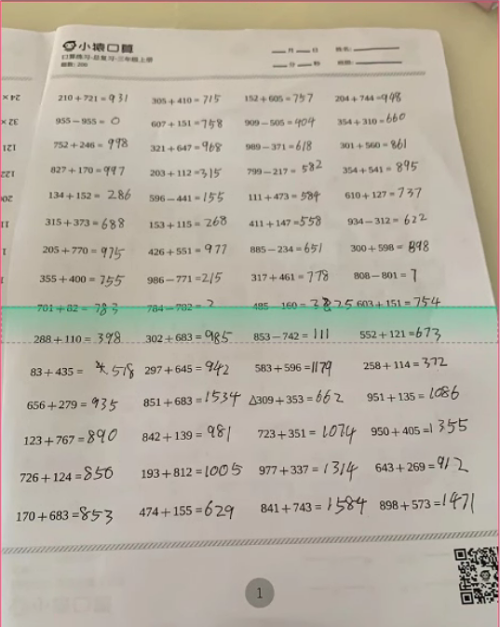 小猿口算
口算练习-总复习-三年级上册
题数: 200
月 日 姓名:
分 秒 班级:
210+721=931 305+410=715 152+605=757 204+744=948
955-955=0 607+151=758 909-505=404 354+310=660
752+246=998 321+647=968 989-371=618 301+560=861
827+170=997 203+112=315 799-217=582 354+541=895
134+152=286 596-441=155 111+473=584 610+127=737
315+373=688 153+115=268 411+147=558 934-312=622
205+770=975 426+551=977 885-234=651 300+598=898
355+400=755 986-771=215 317+461=778 808-801=7
701+82=783 784-782=2 485-160=3825 603+151=754
288+110=398 302+683=985 853-742=111 552+121=673
83+435=518 297+645=942 583+596=1179 258+114=372
656+279=935 851+683=1534 △309+353=662 951+135=1086
123+767=890 842+139=981 723+351=1074 950+405=1355
726+124=850 193+812=1005 977+337=1314 643+269=912
170+683=853 474+155=629 841+743=1584 898+573=1471
1